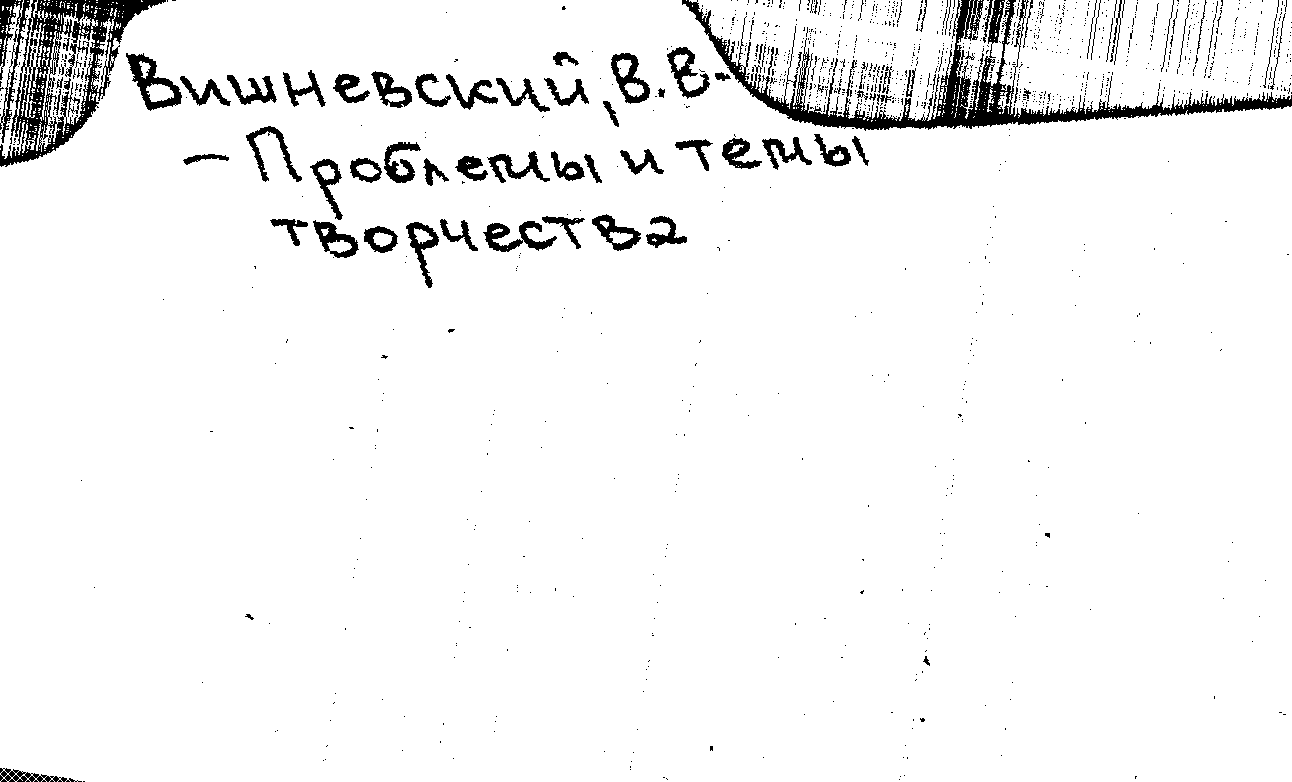 Вишневский, В.В.
— Проблемы и темы
творчества